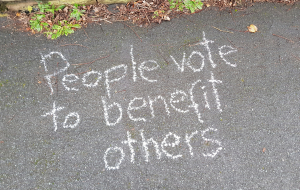 People vote
to benefit
others